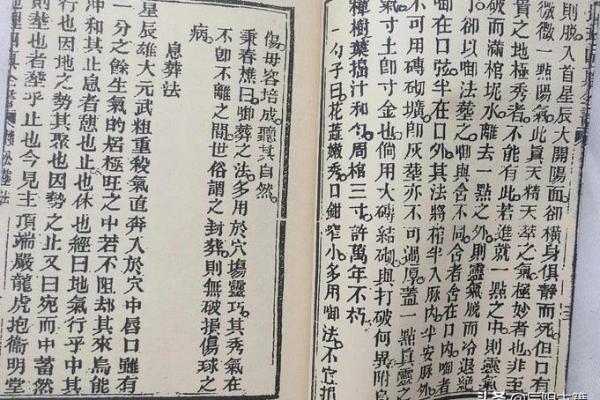 則脫入首星辰大開陽面卻橫身俱靜而死但口有
微微一點陽氣此真天精天萃之氣極妙者也非至
貴之地極秀者不能有此若進就一點之中則靈氣
破而滿棺坭水離去一點之外則靈氣脫而冷退絕
半以啣法塟之啣與舍不同舍者舍在口內啣者
啣在口弦半在口外其法將棺半入脈內半安脈外
不可用磚砌壙卽灰塟亦不可過厚蓋一點真靈之
氣寸土卽寸金也倘用火磚結砌與打破何異附烏
種樹葉搗汁和勻周棺三寸許萬年不朽
一勺子曰花蕊嫩秀口鉗窄小多用啣法不宜損
傷毋容培成聽其自然
秉春樵曰啣葬之法多用於穴場靈巧其秀氣在
不卽不離之間世俗謂之封葬則無破損傷球之
病
息葬法
星辰雄大元武粗重殺氣直奔入於穴中唇口雖有
一分之餘生氣的居極旺之中若不阻却其來烏能
沖和其止息者憩也止也休也經曰地氣行乎中其
行也因地之勢其聚也因勢之止又曰宛而中蓄然
則塟也者塟乎止也今見主頂端嚴龍虎抱衛明堂